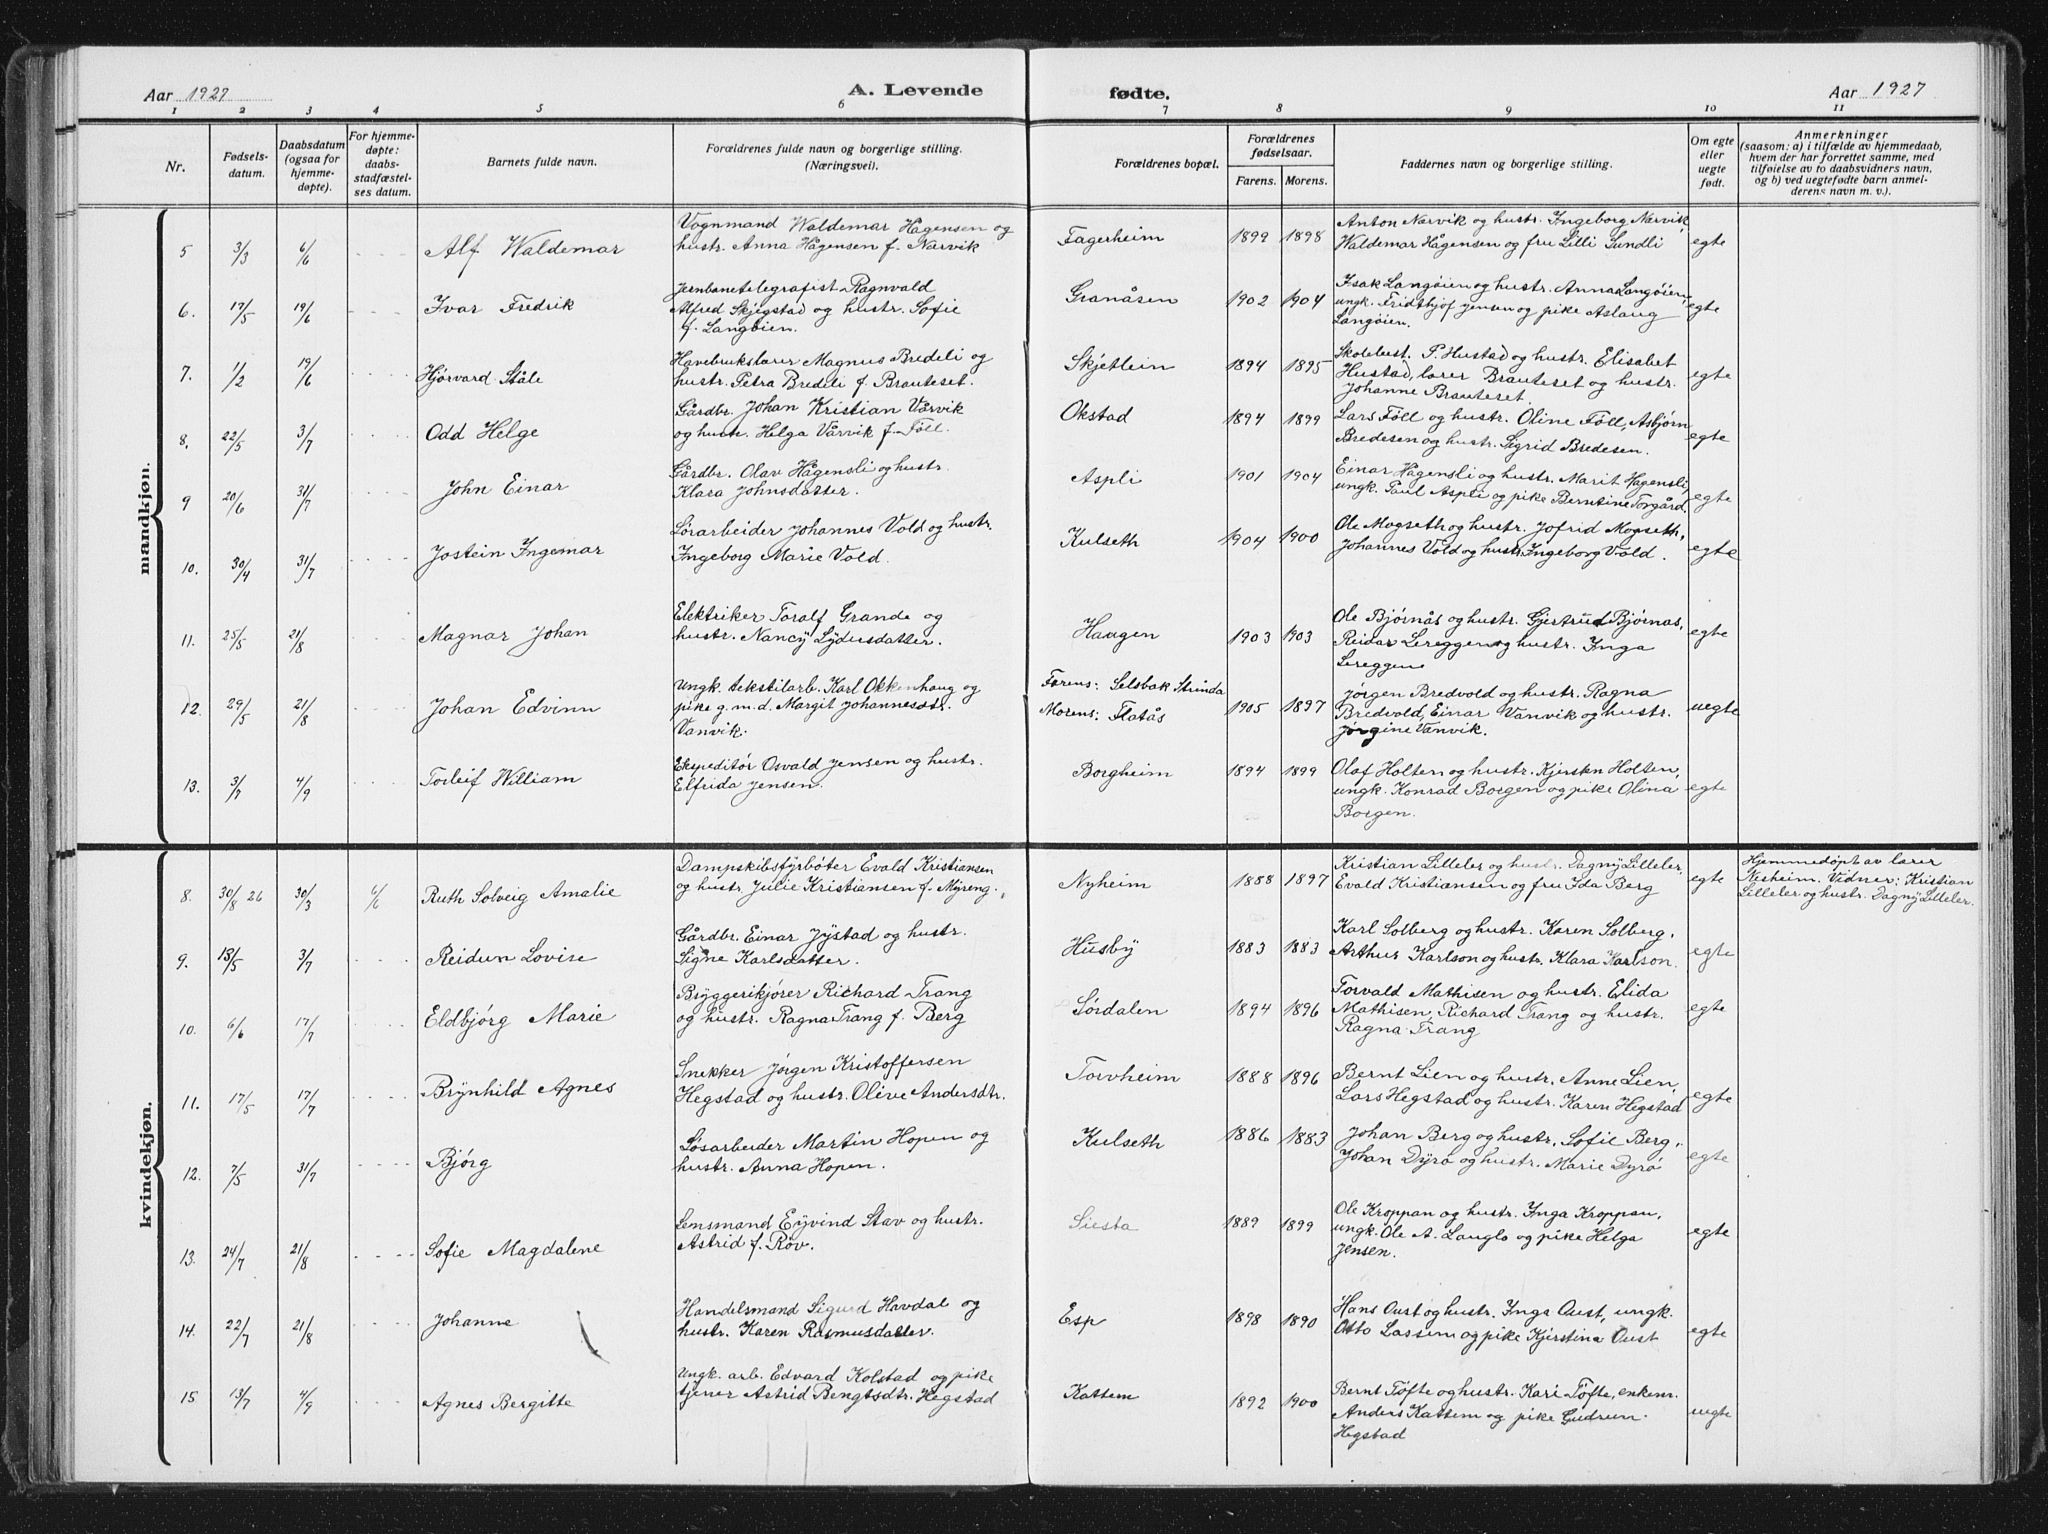 Aar 1927
A. Levende
fødte.
Aar 1927
1 2 3 4 5 6 7 8 9 10 11
Nr.
Fødsels-
datum.
Daabsdatum
(ogsaa for
hjemme-
døpte).
For hjemme-
døpte:
daabs-
stadfæstel-
ses datum.
Barnets fulde navn.
Forældrenes fulde navn og borgerlige stilling.
(Næringsvei).
Forældrenes bopæl.
Forældrenes
fødselsaar.
Farens. Morens.
Faddernes navn og borgerlige stilling.
Om egte
eller
uegte
født.
Anmerkninger
(saasom: a) i tilfælde av hjemmedaab,
hvem der har forrettet samme, med
tilføielse av to daabsvidners navn,
og b) ved uegtefødte barn anmel-
derens navn m. v.).
mandkjøn.
5 3/3 6/6 Alf Waldemar
Vognmand Waldemar Hågensen og
hustr. Anna Hågensen f. Narvik
Fagerheim 1899 1898
Anton Narvik og hustr. Ingeborg Narvik,
Waldemar Hågensen og fru Lilli Sundli
egte
6. 17/5 19/6 Ivar Fredrik
Jernbanetelegrafist Ragnvald
Alfred Skjegstad og hustr. Sofie
f. Langöien.
Granåsen 1902 1904
Isak Langöien og hustr. Anna Langöien,
ungk. Fridthjof Jensen og pike Aslaug
Langöien.
egte
7. 1/2 19/6 Hjörvard Ståle
Havebrukslærer Magnus Bredeli og
hustr. Petra Bredeli f. Brauteset.
Skjetlein 1894 1895
Skolebest. P. Hustad og hustr. Elisabet
Hustad, lærer Brauteset og hustr.
Johanne Brauteset.
egte
8. 22/5 3/7 Odd Helge
Gårdbr. Johan Kristian Vårvik
og hustr. Helga Vårvik f. Föll.
Okstad 1894 1899
Lars Föll og hustr. Oline Föll, Asbjörn
Bredesen og hustr. Sigrid Bredesen.
egte
9 20/6 31/7 John Einar
Gårdbr. Olav Hågensli og hustr.
Klara Johnsdatter.
Aspli 1901 1904
Einar Hågensli og hustr. Marit Hågensli,
ungk. Paul Aspli og pike Berntine Torgård.
egte
10. 30/4 31/7 Jostein Ingemar
Lörarbeider Johannes Vold og hustr.
Ingeborg Marie Vold.
Kulseth 1904 1900
Ole Mogseth og hustr. Jofrid Mogseth,
Johannes Vold og hustr. Ingeborg Vold.
egte
11. 25/5 21/8 Magnar Johan
Elektriker Toralf Grande og
hustr. Nancy Lydersdatter.
Haugen 1903 1903
Ole Bjørnås og hustr. Gjertrud Bjørnås,
Reidar Lereggen og hustr. Inga
Lereggen
egte
12. 29/5 21/8 Johan Edvinn
Ungk. tekstilarb. Karl Okkenhaug og
pike g.m.d. Margit Johannesdtr.
Vanvik.
Farens: Selsbak Strinda
Morens: Flatås
1905 1897
Jörgen Bredvold og hustr. Ragna
Bredvold, Einar Vanvik og hustr.
Jörgine Vanvik.
uegte
13. 3/7 4/9 Torleif William
Ekspeditör Osvald Jensen og hustr.
Elfrida Jensen.
Borgheim 1894 1899
Olaf Holten og hustr. Kjersten Holten,
ungk. Konrad Borgen og pike Olina
Borgen.
egte
kvindekjøn.
8. 30/8 26 30/3 6/6 Ruth Solveig Amalie
Dampskibstyrböter Evald Kristiansen
og hustr. Julie Kristiansen f. Myreng.
Nyheim 1888 1897
Kristian Lilleler og hustr. Dagny Lilleler,
Evald Kristiansen og fru Ida Berg
egte
Hjemmedöpt av lærer
Nesheim. Vidner: Kristian
Lilleler og hustr. Dagny Lilleler.
9. 18/5 3/7 Reidun Lovise
Gårdbr. Einar Jystad og hustr.
Signe Karlsdatter.
Husby 1883 1883
Karl Solberg og hustr. Karen Solberg,
Arthur Karlson og hustr. Klara Karlson.
egte
10. 6/6 17/7 Eldbjörg Marie
Bryggerikjörer Richard Trang
og hustr. Ragna Trang f. Berg
Sördalen 1894 1896
Torvald Mathisen og hustr. Elida
Mathisen, Richard Trang og hustr.
Ragna Trang
egte
11. 17/5 17/7 Brynhild Agnes
Snekker Jörgen Kristoffersen
Hegstad og hustr. Olive Andersdtr.
Torvheim 1888 1896
Bernt Lien og hustr. Anne Lien,
Lars Hegstad og hustr. Karen Hegstad
egte
12. 7/5 31/7 Bjórg
Lösarbeider Martin Hopen og
hustr. Anna Hopen.
Kulseth 1886 1883
Johan Berg og hustr. Sofie Berg,
Johan Dyrö og hustr. Marie Dyrö
egte
13. 24/7 21/8 Sofie Magdalene
Lensmand Eyvind Stav og hustr.
Astrid f. Röv.
Siesta 1889 1899
Ole Kroppan og hustr. Inga Kroppan,
ungk. Ole A. Langlo og pike Helga
Jensen.
egte
14. 22/7 21/8 Johanne
Handelsmand Sigurd Havdal og
hustr. Karen Rasmusdatter.
Esp 1898 1890
Hans Oust og hustr. Inga Oust, ungk.
Otto Lassem og pike Kjerstina Oust
egte
15 13/7 4/9 Agnes Bergitte
Ungk. arb. Edvard Kolstad og pike
tjener Astrid Bengtsdtr. Hegstad
Kattem 1892 1900
Bernt Töfte og hustr. Kari Töfte, enkem.
Anders Kattem og pike Gudrun
Hegstad
uegte